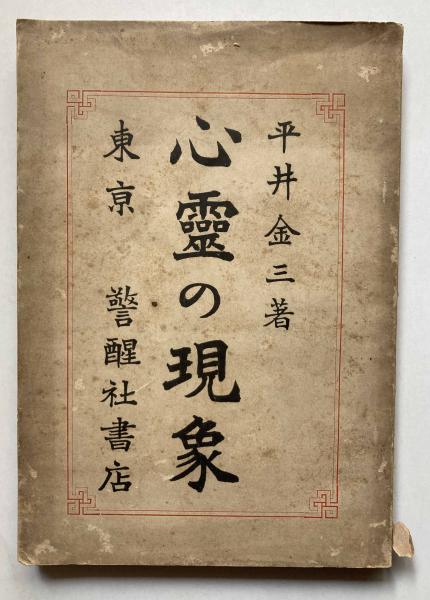 平井金三著
心靈の現象
東亰 警醒社書店